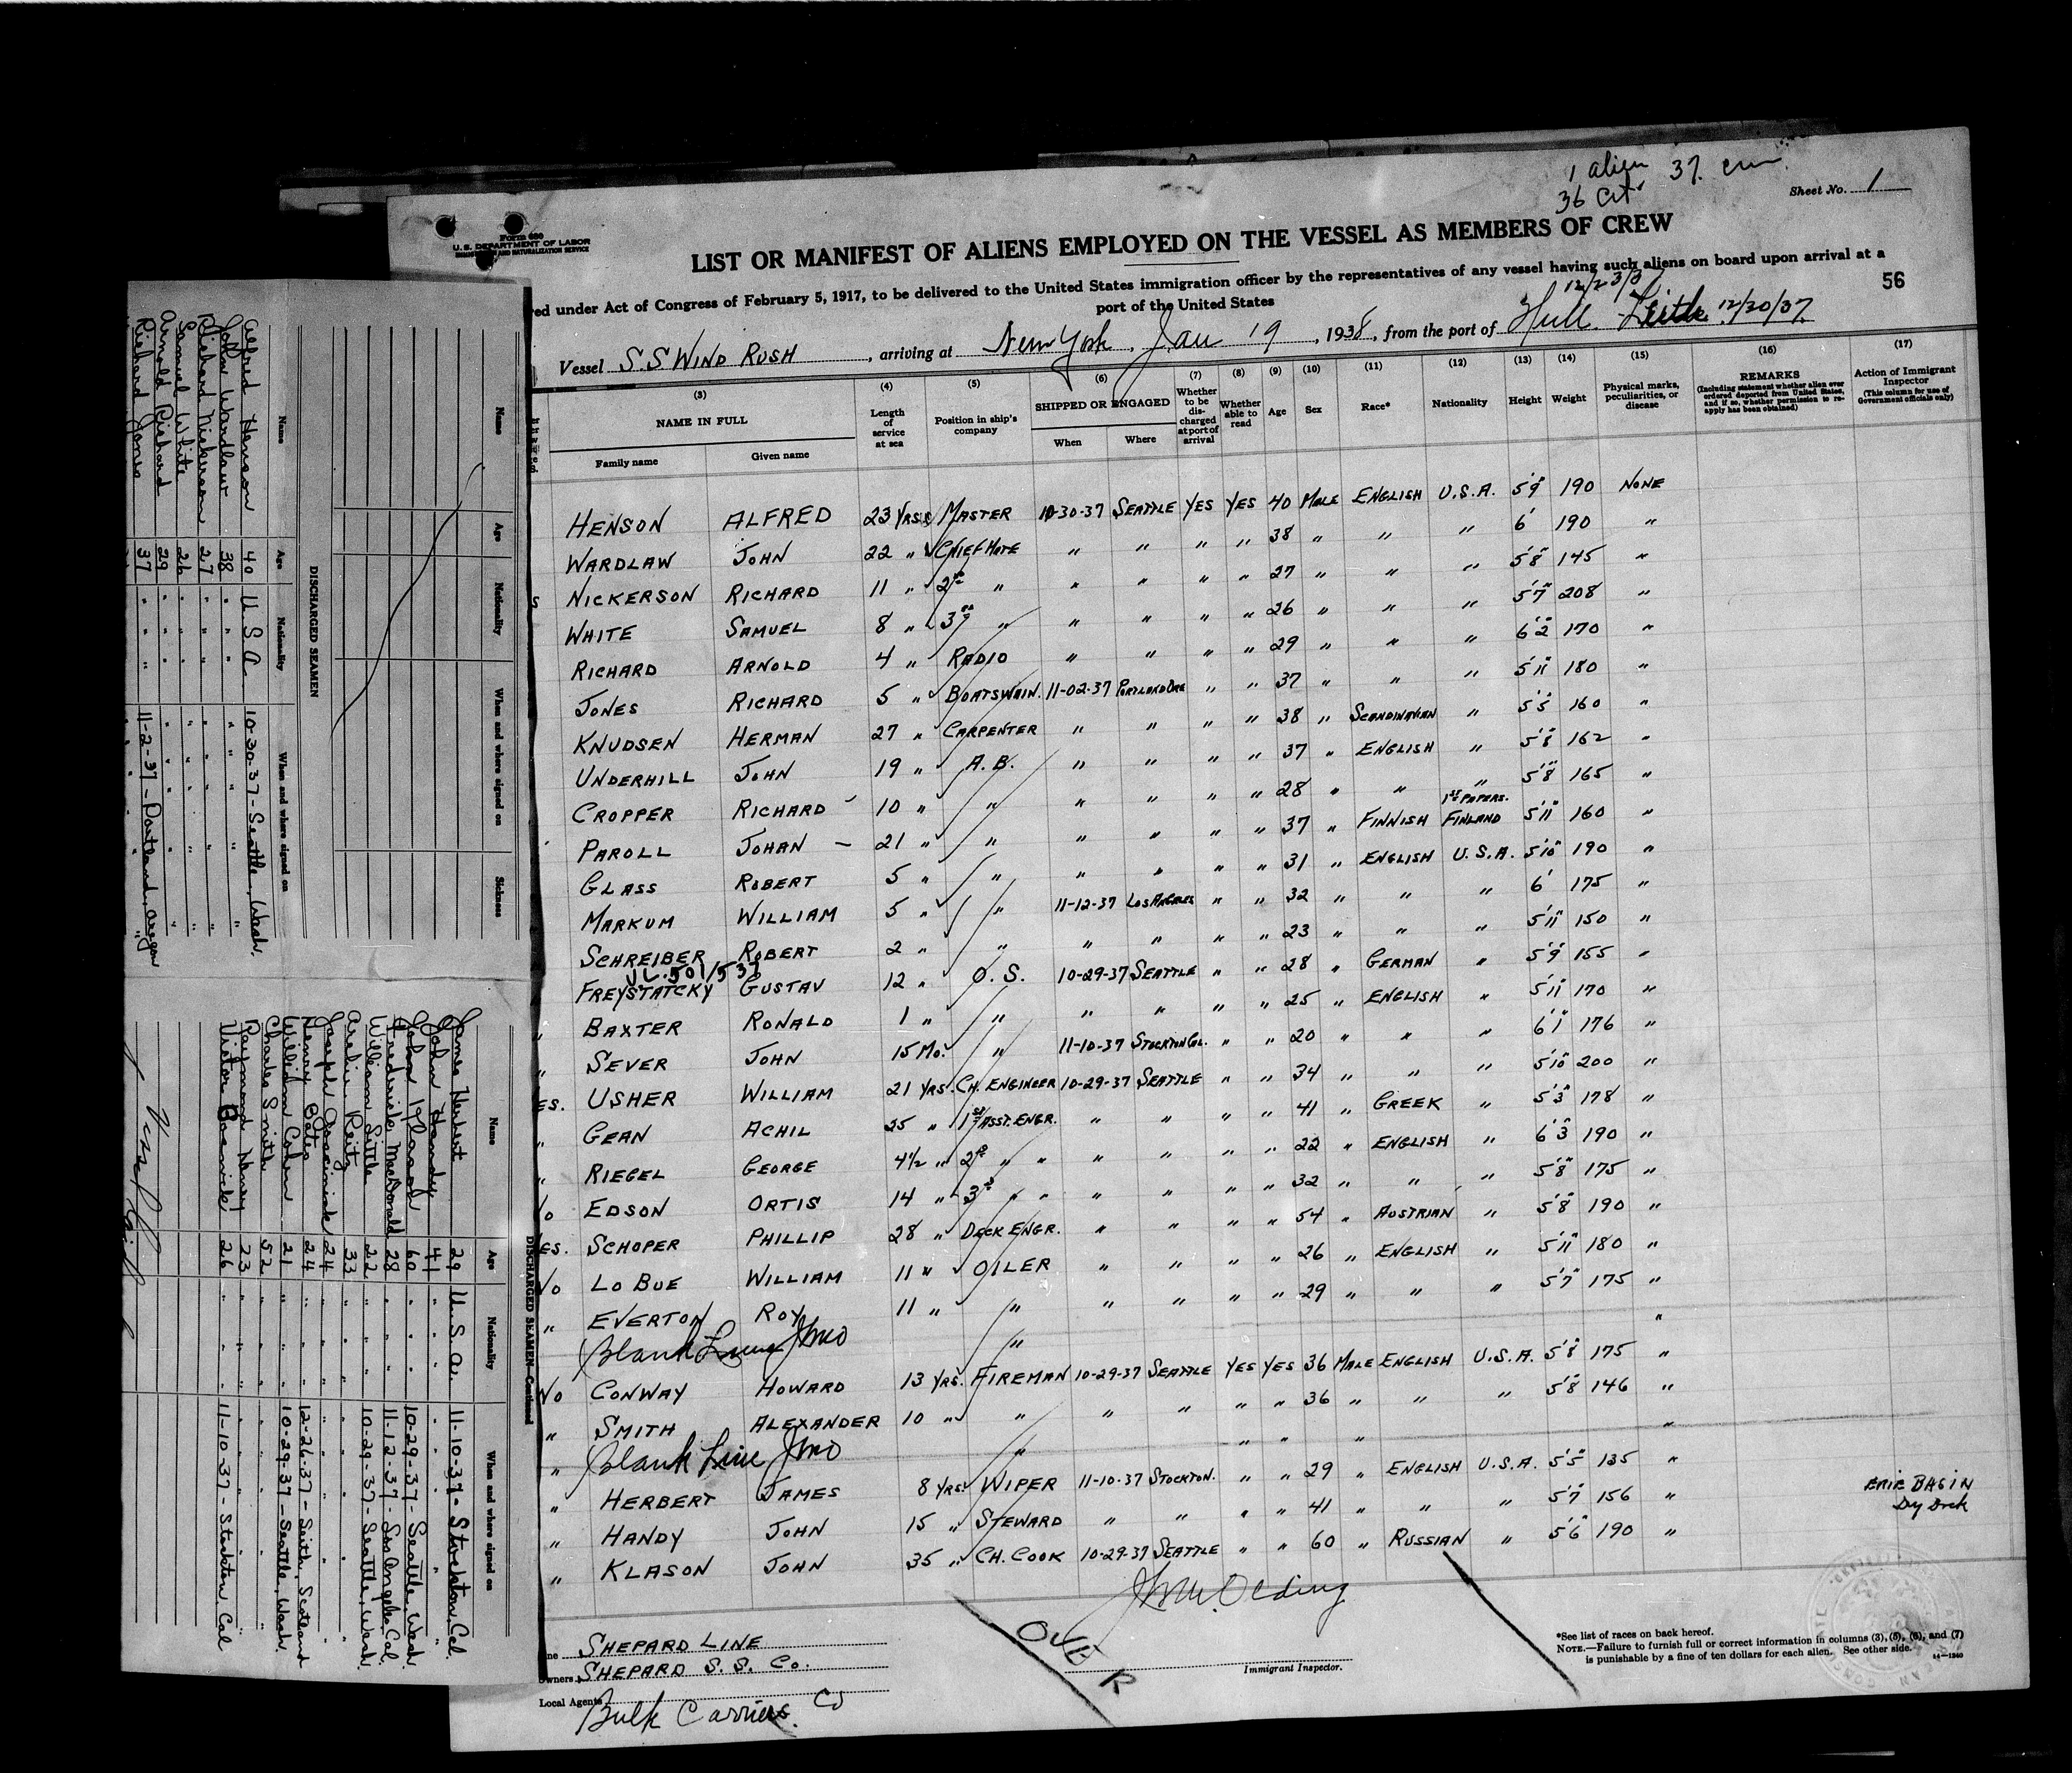 1 alien 37. crew
36 Cit
Sheet No. 1
Form 680
U.S. DEPARTMENT OF LABOR
IMMIGRATION AND NATURALIZATION SERVICE
LIST OR MANIFEST OF ALIENS EMPLOYED ON THE VESSEL AS MEMBERS OF CREW
red under Act of Congress of February 5, 1917, to be delivered to the United States immigration officer by the representatives of any vessel having such aliens on board upon arrival at a
port of the United States
56
12/23/37
Vessel S.S WIND RUSH, arriving at New York, Jan 19, 1938, from the port of Hull Leith 12/20/37
(3) (4) (5) (6) (7) (8) (9) (10) (11) (12) (13) (14) (15) (16) (17)
NAME IN FULL
Family name Given name
Length of service at sea
Position in ship's company
SHIPPED OR ENGAGED
When Where
Whether to be discharged at port of arrival
Whether able to read
Age Sex Race* Nationality Height Weight
Physical marks, peculiarities, or disease
REMARKS
(Including statement whether alien ever ordered deported from United States, and if so, whether permission to reapply has been obtained)
Action of Immigrant Inspector
(This column for use of Government officials only)
HENSON ALFRED 23 YRS MASTER 10-30-37 SEATTLE YES YES 40 MALE ENGLISH U.S.A. 5'9" 190 NONE
WARDLAW JOHN 22 " CHIEF MATE " " " " 38 " " " 6' 190 "
NICKERSON RICHARD 11 " 2ND " " " " " 27 " " " 5'8" 145 "
WHITE SAMUEL 8 " 3RD " " " " " 26 " " " 5'7" 208 "
RICHARD ARNOLD 4 " RADIO " " " " 29 " " " 6'2" 170 "
JONES RICHARD 5 " BOATSWAIN. 11-02-37 PORTLAND ORE " " 37 " " " 5'11" 180 "
KNUDSEN HERMAN 27 " CARPENTER " " " " 38 " SCANDINAVIAN " 5'5" 160 "
UNDERHILL JOHN 19 " A.B. " " " " 37 " ENGLISH " 5'8" 162 "
CROPPER RICHARD 10 " " " " " " 28 " " " 5'8" 165 "
PAROLL JOHAN 21 " " " " " " 37 " FINNISH 1ST PAPERS. FINLAND 5'11" 160 "
GLASS ROBERT 5 " " " " " " 31 " ENGLISH U.S.A. 5'10" 190 "
MARKUM WILLIAM 5 " " 11-12-37 LOS ANGELES " " 32 " " " 6' 175 "
SCHREIBER ROBERT 2 " " " " " " 23 " " " 5'11" 150 "
FREYSTATCKY GUSTAV 12 " O.S. 10-29-37 SEATTLE " " 28 " GERMAN " 5'9" 155 "
BAXTER RONALD 1 " " " " " " 25 " ENGLISH " 5'11" 170 "
SEVER JOHN 15 MO. " 11-10-37 STOCKTON CAL. " " 20 " " " 6'1" 176 "
USHER WILLIAM 21 YRS. CH. ENGINEER 10-29-37 SEATTLE " " 34 " " " 5'10" 200 "
GEAN ACHIL 25 " 1ST ASST. ENGR. " " " " 41 " GREEK " 5'3" 178 "
RIEGEL GEORGE 4½ " 2ND " " " " " " 22 " ENGLISH " 6'3" 190 "
EDSON ORTIS 14 " 3RD " " " " " " 32 " " " 5'8" 175 "
SCHOPER PHILLIP 28 " DECK ENGR. " " " " 54 " AUSTRIAN " 5'8" 190 "
LO BUE WILLIAM 11 " OILER " " " " 26 " ENGLISH " 5'11" 180 "
EVERTON ROY 11 " " " " " " 29 " " " 5'7" 175 "
Blank Line JMO " "
CONWAY HOWARD 13 YRS. FIREMAN 10-29-37 SEATTLE YES YES 36 MALE ENGLISH U.S.A. 5'8" 175 "
SMITH ALEXANDER 10 " " " " " " 36 " " " 5'8" 146 "
Blank Line JMO " " " " "
HERBERT JAMES 8 YRS. WIPER 11-10-37 STOCKTON. " " 29 " ENGLISH U.S.A. 5'5" 135 "
HANDY JOHN 15 " STEWARD " " " " 41 " " " 5'7" 156 "
KLASON JOHN 35 " CH. COOK 10-29-37 SEATTLE " " 60 " RUSSIAN " 5'6" 190 "
ERIE BASIN
Dry Dock
OVER
Immigrant Inspector.
SHEPARD LINE
Owners SHEPARD S.S. Co.
Local Agents Bulk Carriers Co
*See list of races on back hereof.
NOTE.—Failure to furnish full or correct information in columns (3), (5), (6), and (7)
is punishable by a fine of ten dollars for each alien. See other side.
14—1240
DISCHARGED SEAMEN
Name Age Nationality When and where signed on Sickness
Name Age Nationality When and where signed on
Alfred Henson 40 U S A 10-30-37-Seattle, Wash.
John Wardlaw 38 " " "
Richard Nickerson 27 " " "
Samuel White 26 " " "
Arnold Richard 29 " " "
Richard Jones 37 " 11-2-37-Portland, Oregon
DISCHARGED SEAMEN—Continued
Name Age Nationality When and where signed on
James Herbert 29 U S A. 11-10-37-Stockton, Cal.
John Handy 41 " " "
John Klason 60 " 10-29-37-Seattle, Wash.
Fredrick MacDonald 28 " 11-12-37-Los Angeles, Cal.
William Little 22 " 10-29-37-Seattle, Wash.
Archie Reitz 33 " "
Joseph 24 " "
Henry Bates 24 " 12-26-37-Leith, Scotland
William Cohn 21 " 10-29-37-Seattle, Wash.
Charles Smith 52 " "
Raymond Henry 23 " "
Victor 26 " 11-10-37-Stockton, Cal